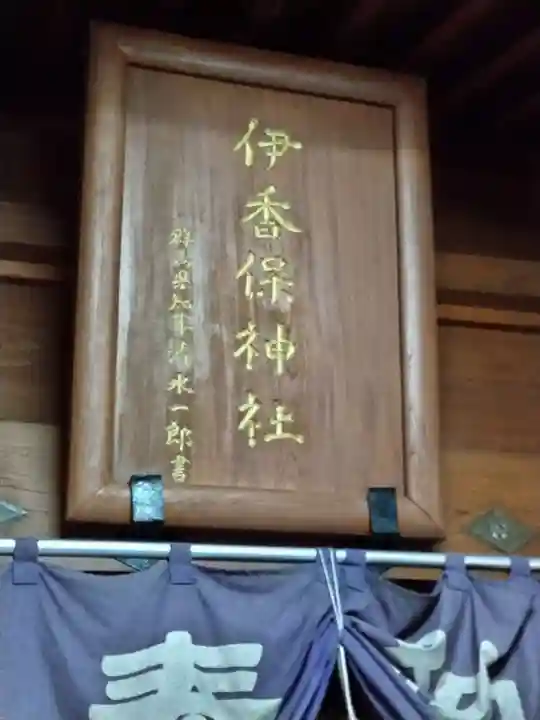 伊香保神社
群馬県知事清水一郎書
奉